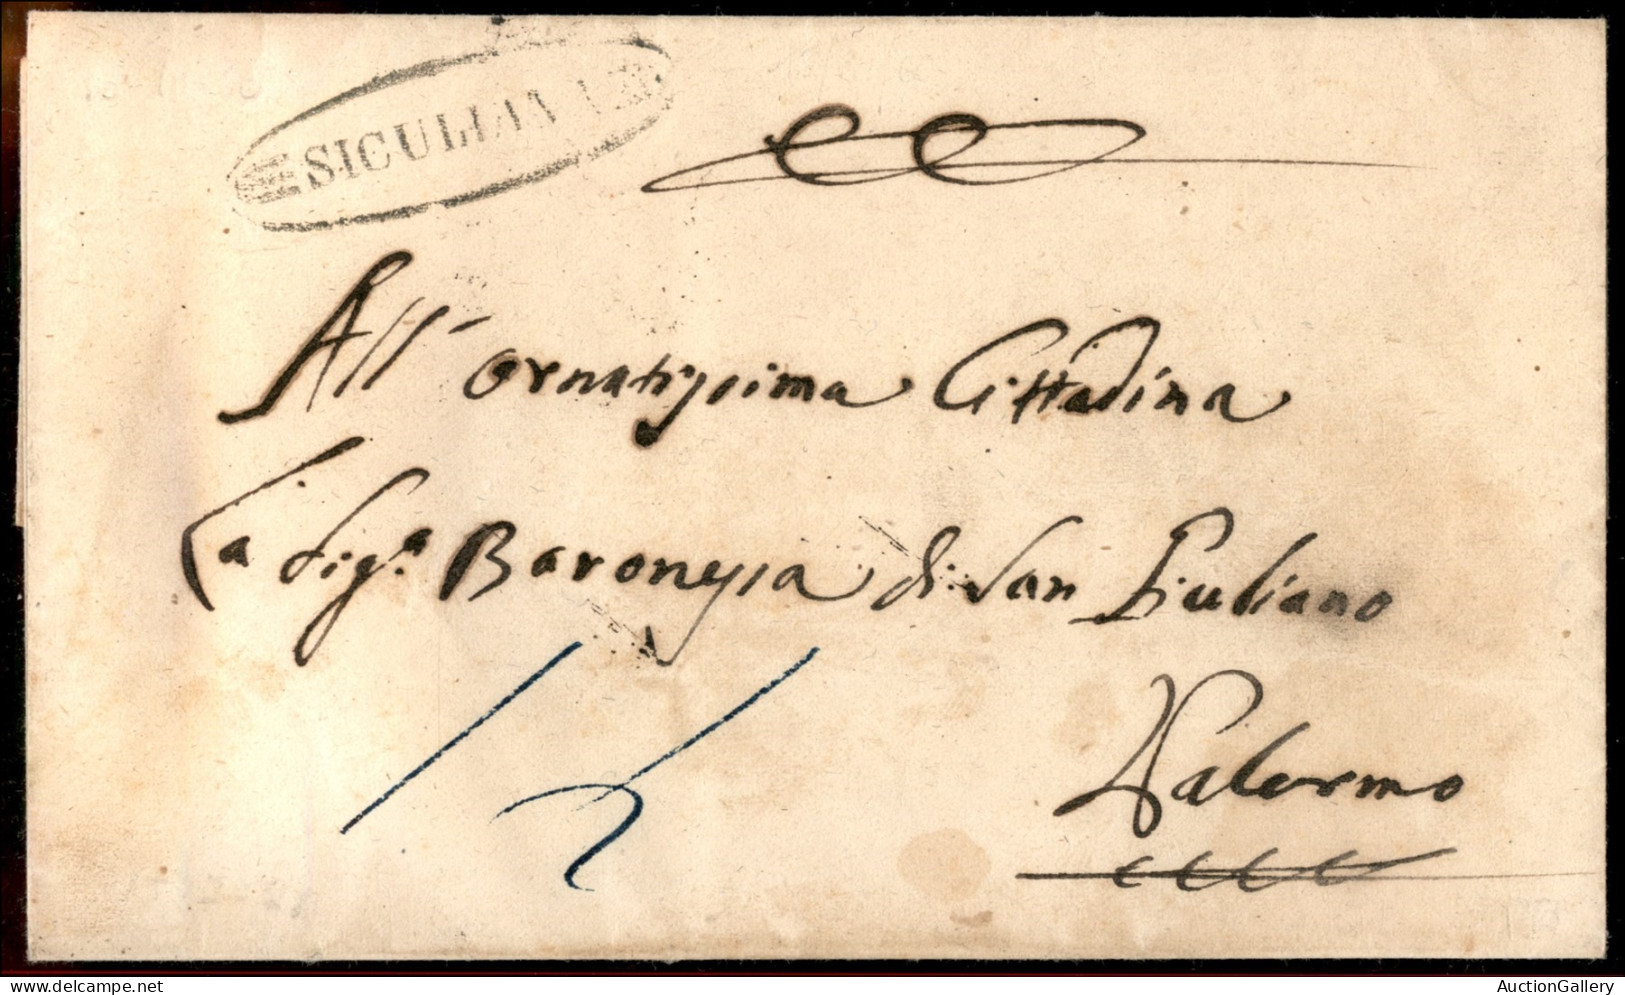 SICULIANA
All' Ornatissima Cittadina
La Sig.a Baronessa di San Giuliano
Palermo
AuctionGallery